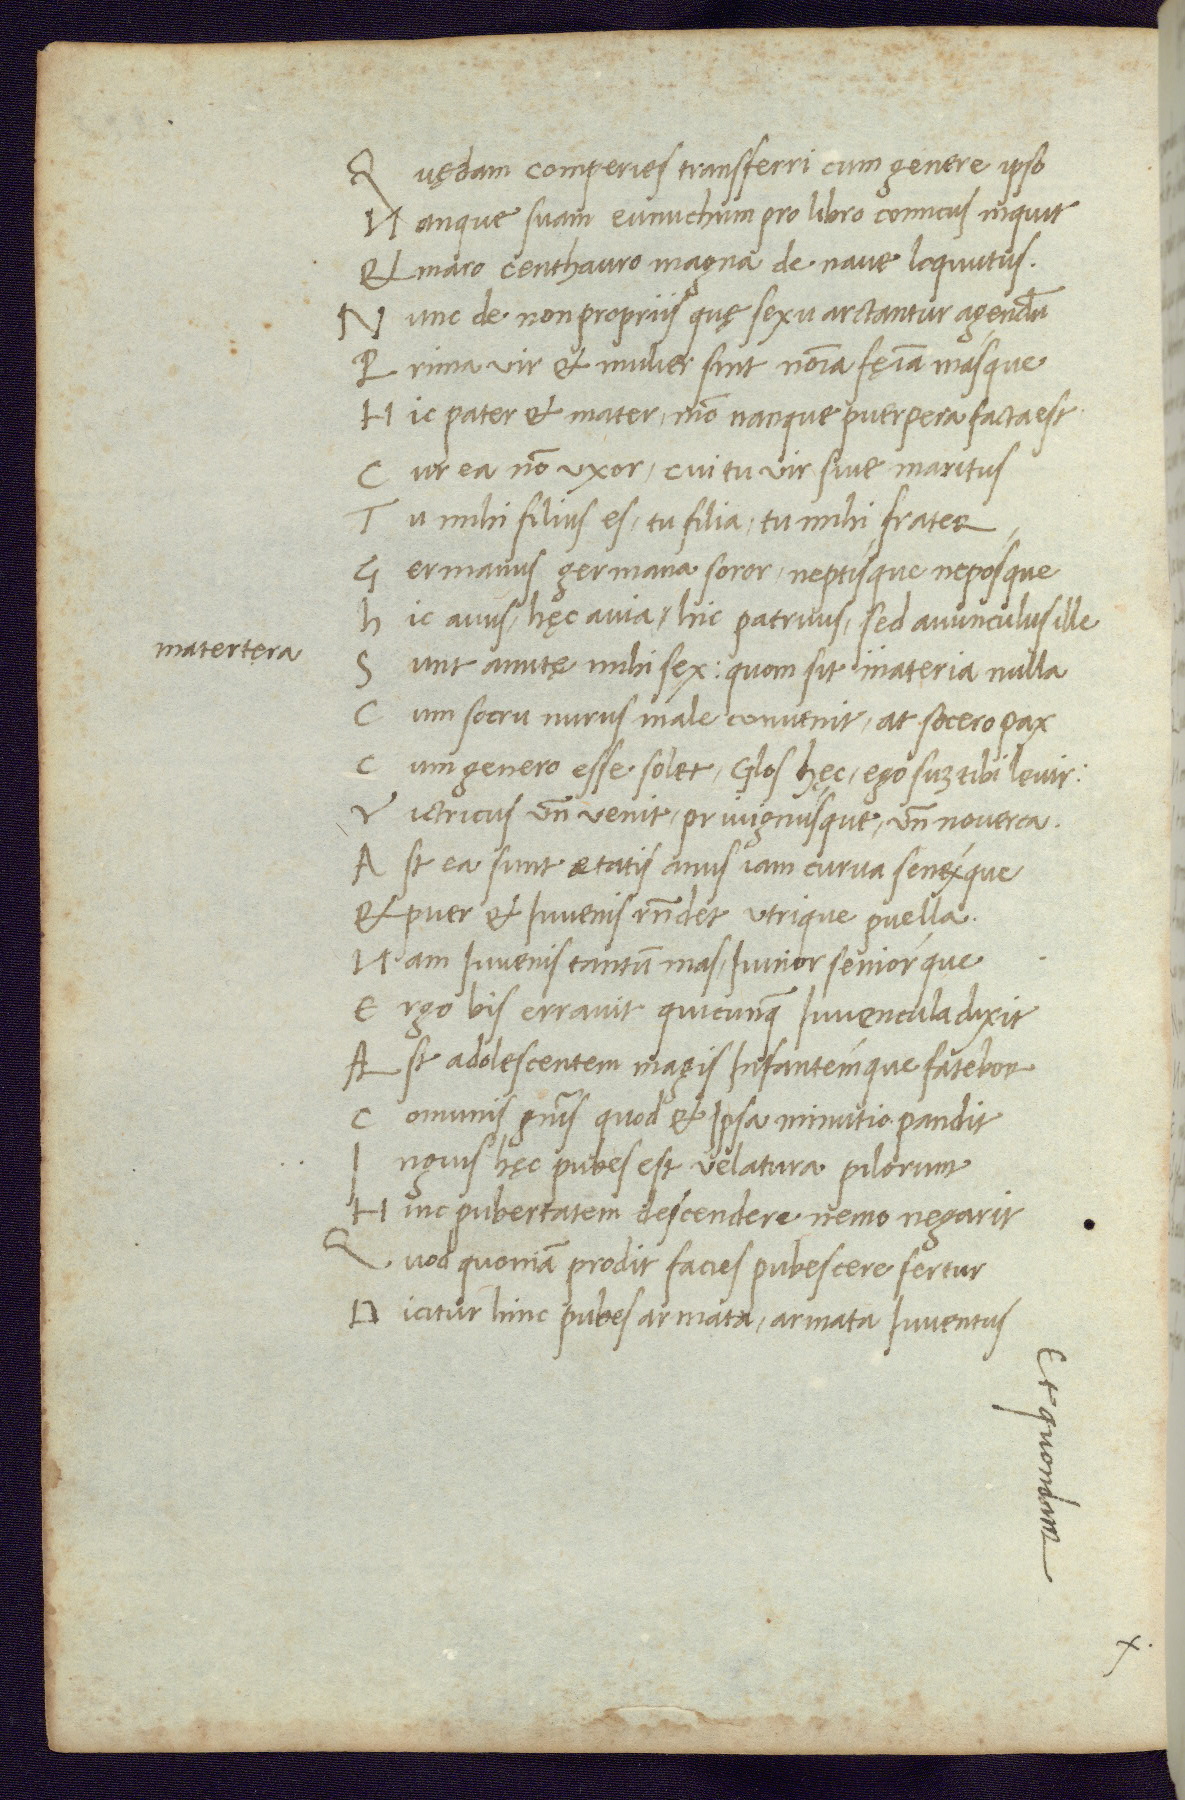 Quędam comperies transferri cum genere ipso
Nanque suam eunuchum pro libro comicus inquit
Et maro centhauro magna de naue loquutus.
Nunc de non propriis quę sexu arctantur agendū
Prima vir et mulier sunt nōīa fęīa masque
Hic pater et mater, mō nanque puerpera facta est
Cur ea nō vxor, cui tu vir siue maritus
Tu mihi filius es, tu filia, tu mihi frater
Germanus germana soror, neptisque neposque
hic auus, hęc auia, hic patruus, sed auunculus ille
matertera
Sunt amitę mihi sex: quom sit materia nulla
Cum socru nurus male conuenit, at socero pax
Cum genero esse solet, Glos hęc, ego suꝫ tibi leuir:
Victricus vn̄ venit, priuignusque, vn̄ nouerca.
Ast ea sunt etatis anus iam curua senexque
Et puer et Iuuenis rn̄det vtrique puella.
Nam Iuuenis tantū mas, Iunior seniorque
Ergo bis errauit quicunq̄ Iuuencula dixit
Ast adolescentem magis Infantemque fatebor
Comunis gn̄is quod et Ipsa minutio pandit
Inguis hęc pubes est velatura pilorum
Hinc pubertatem descendere nemo negarit
Quod quoniā prodit facies pubescere fertur
Dicitur hinc pubes armata, armata Iuuentus
Et quondam
x.